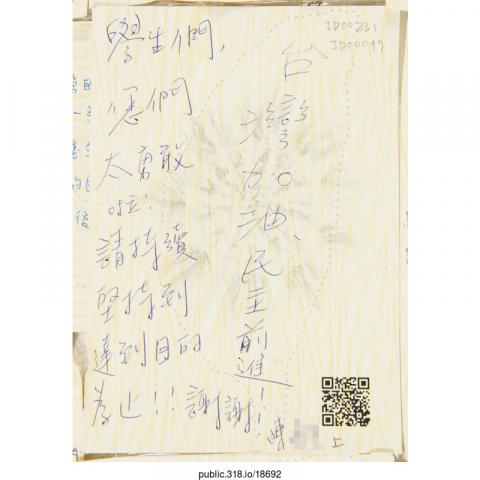 ID00231
ID00097
學生們,
您們
太勇敢
啦!
請持續
堅持到
達到目的
為止!!謝謝!
台灣加油、民主前進!
陳
上
public.318.io/18692